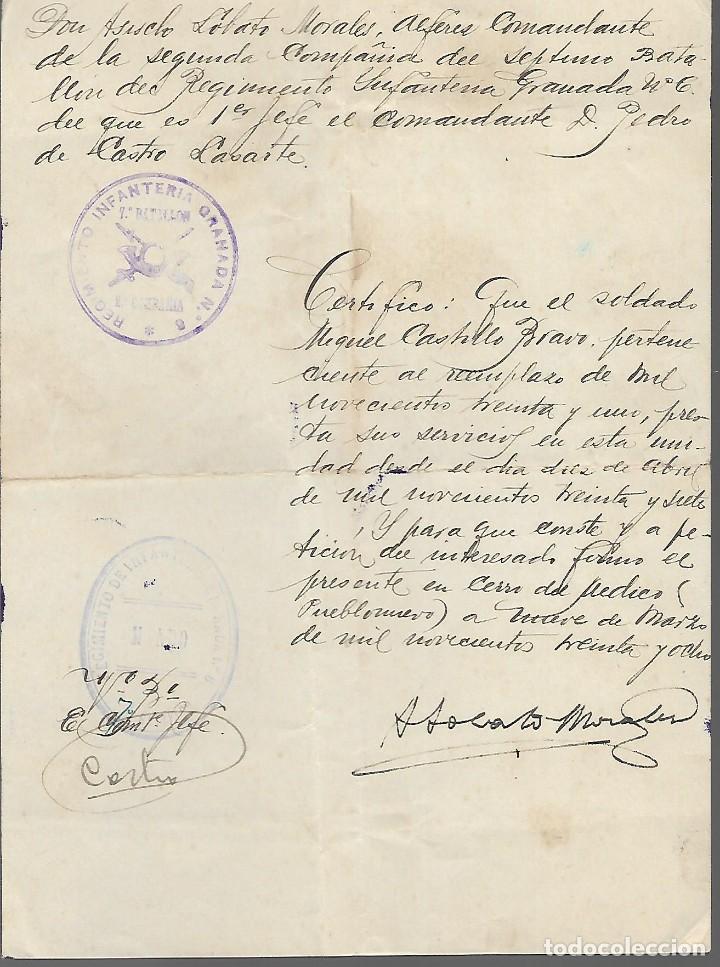 Don Asisclo Lobato Morales, Alferes Comandante
de la segunda Compañia del septimo Bata-
llon del Regimiento Infanteria Granada Nº 6.
del que es 1er Jefe el Comandante D. Pedro
de Castro Lasarte.
REGIMIENTO INFANTERIA GRANADA N.º 6
7.º BATALLON
2.ª COMPAÑIA
Certifico: Que el soldado
Miguel Castillo Bravo, pertene
ciente al reemplazo de mil
novecientos treinta y uno, pres
ta sus servicios en esta uni-
dad desde el dia diez de Abril
de mil novecientos treinta y siete
Y para que conste y a pe-
ticion del interesado firmo el
presente en Cerro del Medico (
Pueblonuevo) a nueve de Marzo
de mil novecientos treinta y ocho
REGIMIENTO DE INFANTERIA
Vº Bº
El Comte. Jefe.
Castro
A Lobato Morales
todocoleccion